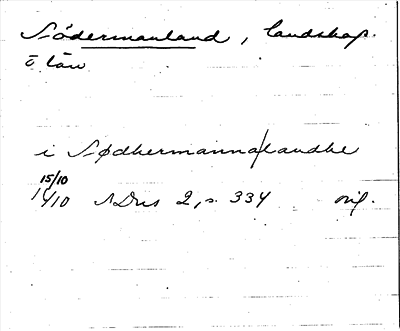 Södermanland, landskap.
o län
i Sødhermanna/landhe
15/10
1410 SDns 2, s. 334 orig.